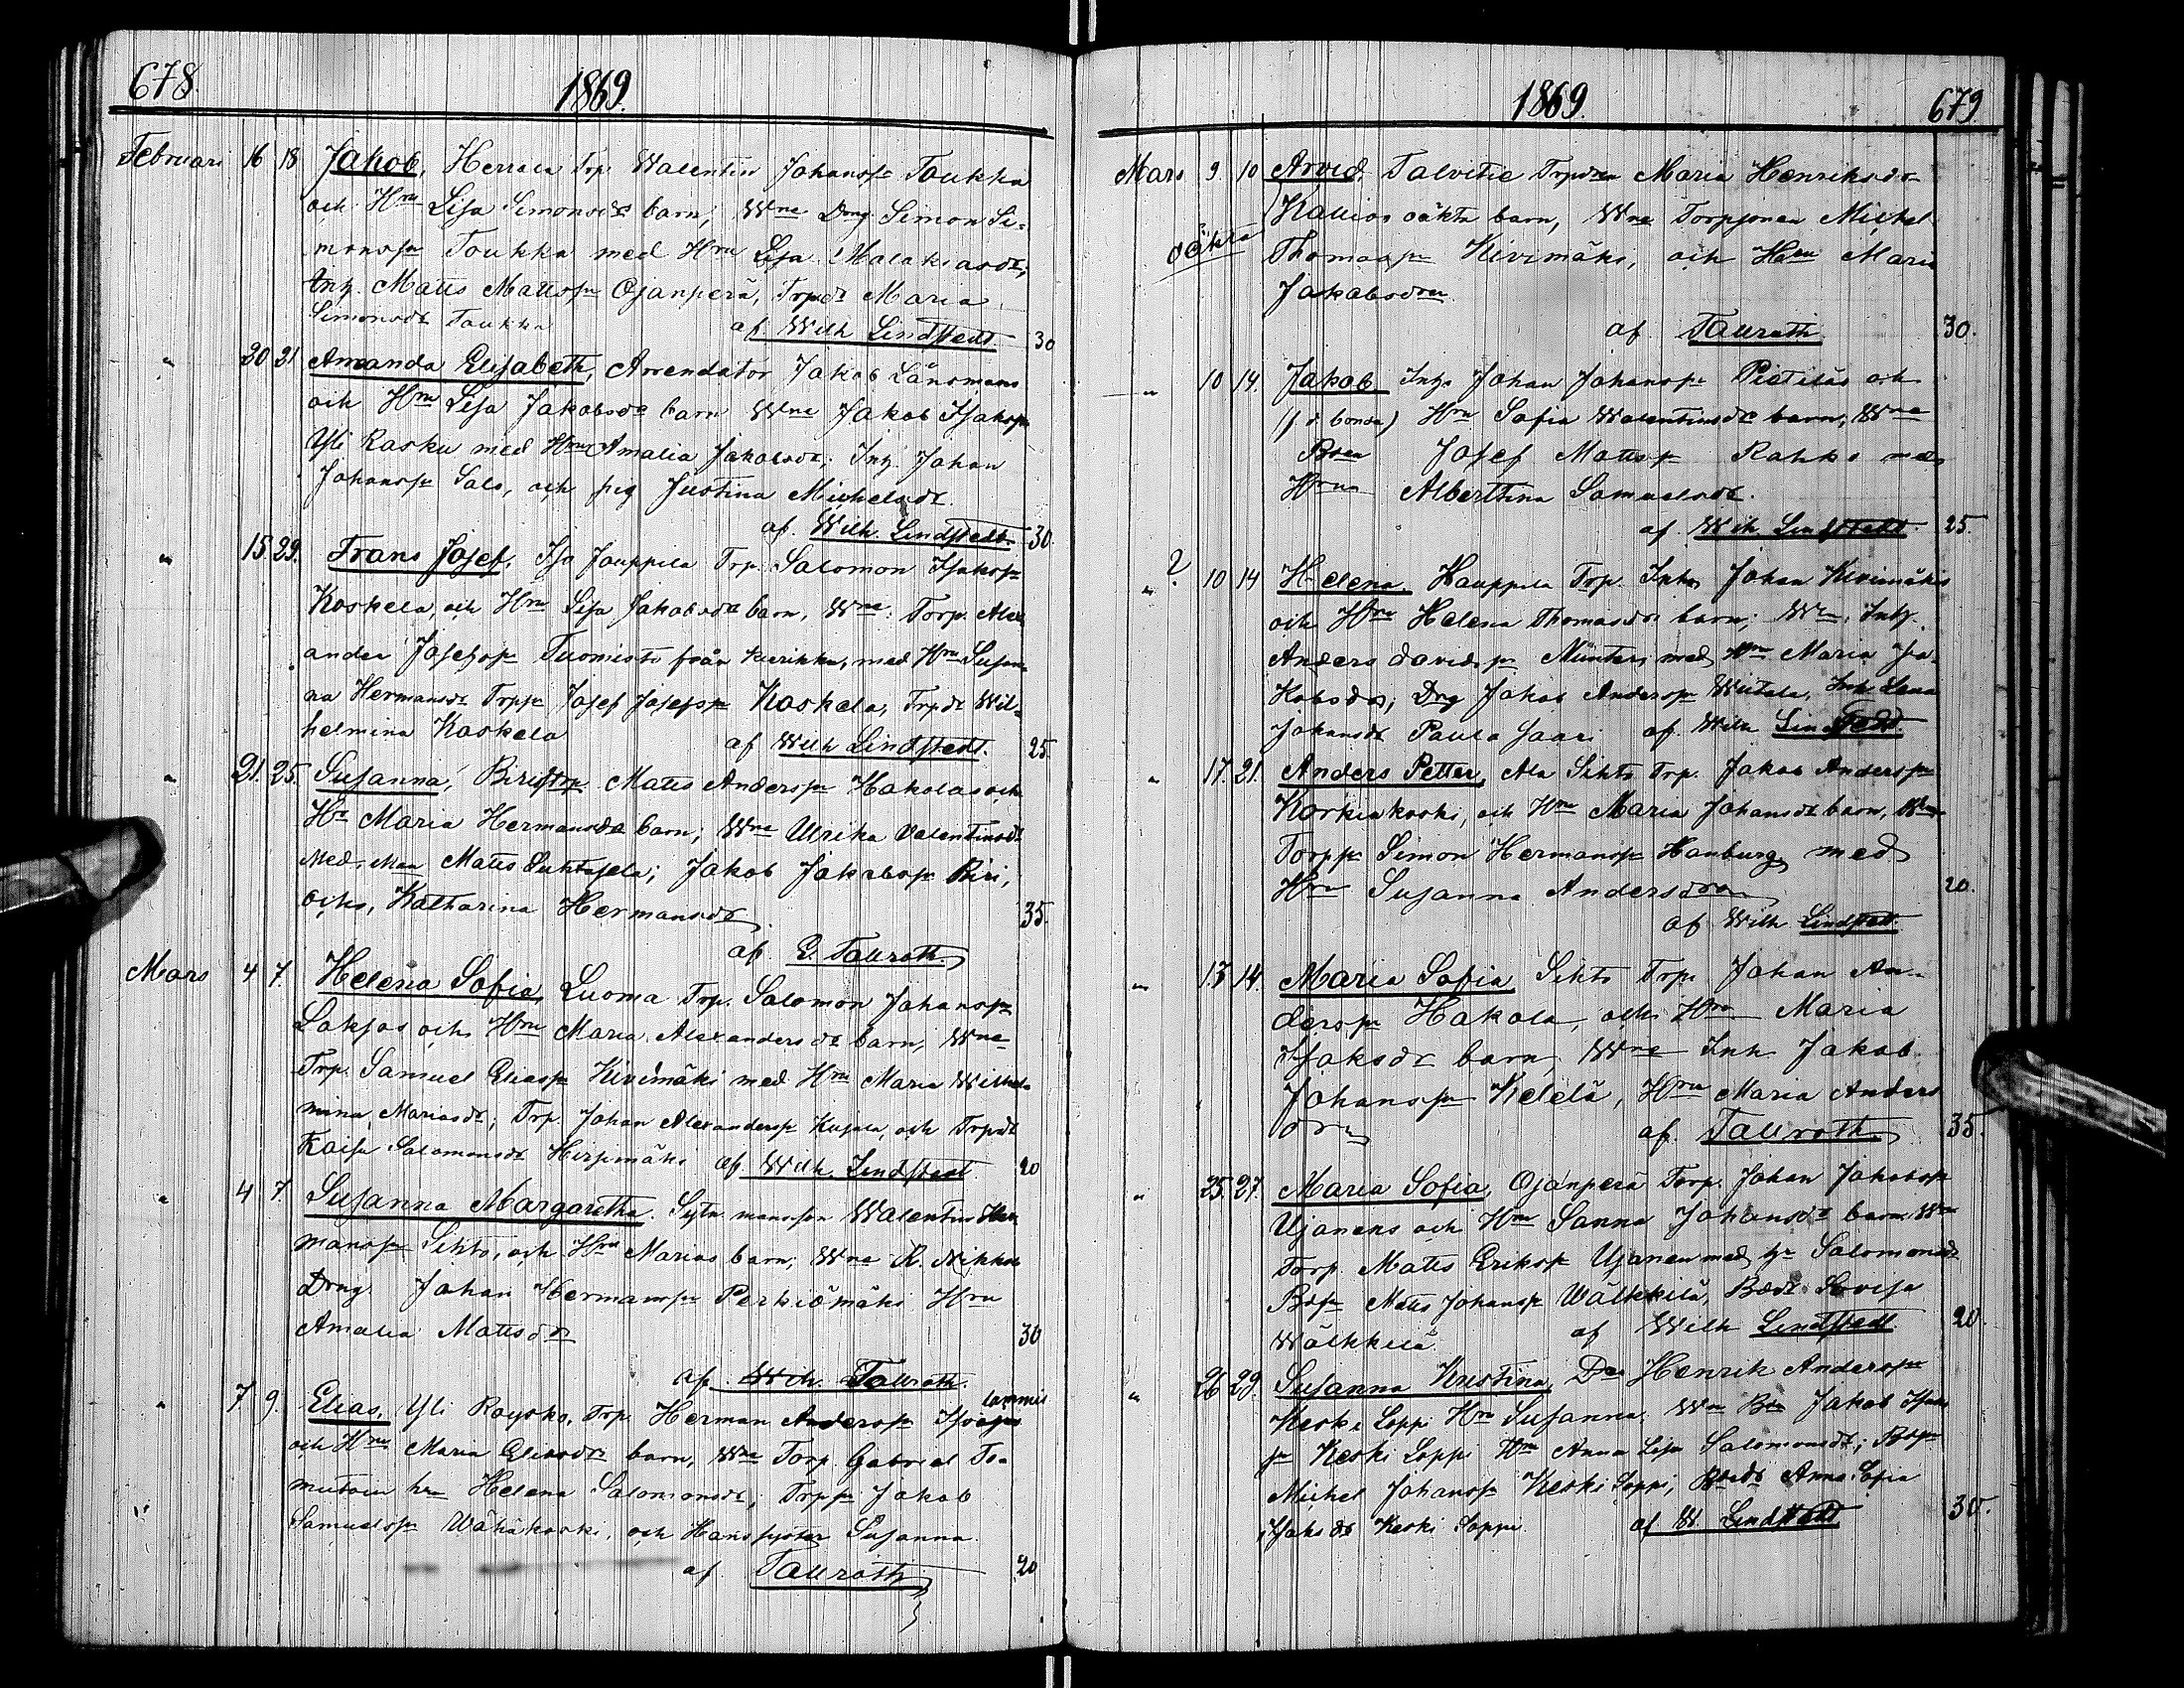 678. 1869.
Februari 16 18 Jakob, Herrala Trp. Walentin Johanss. Toukka
och Hru Lisa Simonsdr barn; Wne Drng Simon Si-
monss. Toukka med Hru Lisa Malakiasdr,
Inh. Matts Mattss. Ojanperä, Trpdr Maria
Simonsdr Toukka af Wilh Lindstedt. 30
" 20 21 Amanda Elisabeth, Arrendator Jakob Länsmans
och Hru Lisa Jakobsdr barn Wne Jakob Isakss.
Yli Rasku med Hru Amalia Jakobsdr, Inh. Johan
Johanss. Salo, och pig Justina Michelsdr.
af Wilh. Lindstedt. 30.
" 15 29. Frans Josef, Iso Jauppila Trp. Salomon Isakss.
Koskela, och Hru Lisa Jakobsdr barn, Wne. Torp. Alex
ander Josefss. Tuomisto från Kurikka, med Hru Susan
na Hermansdr Trpss. Josef Josefss. Koskela, Trpdr Wil-
helmina Koskela af Wilh Lindstedt. 25.
" 21. 25. Susanna, Matts Anderss. Hakolas och
Hr Maria Hermansdr barn; Wne Ulrika Valentinsdr
Med. Man Matts Luhtasela; Jakob Jakobss. Riri,
och, Katharina Hermansdr 35.
af. E. Tauroth.
Mars 4 7. Helena Sofia, Luoma Trp. Salomon Johanss.
Laksos och Hru Maria Alexandersdr barn, Wne
Trp. Samuel Eliass. Kivimäki med Hru Maria Wilhel
mina Mariasdr; Trp. Johan Alexanderss. Kujala, och Trpdr
Kaisa Salomonsdr Hirsimäki af. Wilh. Lindstedt 20
" 4 7. Susanna Margaretha. Sytn. mansson Walentin Her
manss. Sihto, och Hru Marias barn; Wne R. Nikkola
Drng Johan Hermanss. Perkiömäki Hru
Amalia Mattsdr 30
af. Wilh. Tauroth.
" 7 9. Elias, Yli Röysko, Trp. Herman Anderss. Lammis
och Hru Maria Eliasdr barn, Wne Torp. Gabriel To-
mutoin hu Helena Salomonsdr, Trpss. Jakob
Samuelss. Wähäkoski, och Hans syster Susanna.
af. Tauroth 20
1869. 679.
Mars 9. 10 Arvid, Talvitie Trpdr Maria Henriksdr
Kallios oäkta barn, Wne Torpsonen Michel
oäkta Thomass. Kivimäki, och Hru Maria
Jakobsdr.
af. Tauroth 30.
" 10 14. Jakob Inh. Johan Johanss. Pietiläs och
(f. d. bonde) Hru Sofia Walentinsdr barn; Wne
Bon Josef Mattss. Rahko med
Hru Alberttina Samuelsdr.
af. Wilh. Lindstedt. 25.
" ? 10 14 Helena, Kauppila Trp. Inh. Johan Kivimäkis
och Hru Helena Thomasdr barn; Wne. Inh.
Anders Davids. Munter, med Hru Maria Ja-
kobsdr; Drg Jakob Anderss. Wiitala, Inh. Lena
Johansdr Paulasaari af Wilh Lindstedt.
" 17. 21. Anders Petter, Ala Sihto Trp. Jakob Anderss.
Korkiakoski, och Hru Maria Johansdr barn, Wne
Torpss. Simon Hermanss. Hanburg, med
Hru Susanna Andersdr 20.
af Wilh Lindstedt.
" 13 14. Maria Sofia, Sihto Trp. Johan An-
derss. Hakola, och Hru Maria
Isaksdr barn, Wne Inh. Jakob
Johanss. Kelelä, Hru Maria Anders
dr af. Tauroth 35.
" 25. 27. Maria Sofia, Ojanperä Torp. Johan Jakobss.
Ujanens och Hru Sanna Johansdr barn, Wne
Torp. Matts Erikss. Ujanen med hu Salomonsdr
Bdss. Matts Johanss. Wälkkilä, Bdr Lovisa
Wälkkilä af Wilh Lindstedt 20.
" 26 29. Susanna Kristina, Henrik Anderss.
Keski Loppi Hru Susanna, Wne Bn Jakob Isaks
s. Keski Loppi Hru Anna Lisa Salomonsdr; Bdss.
Michel Johanss. Keski Loppi, Bdr Anna Sofia
Isaksdr Keski Loppi. af W. Lindstedt 30.